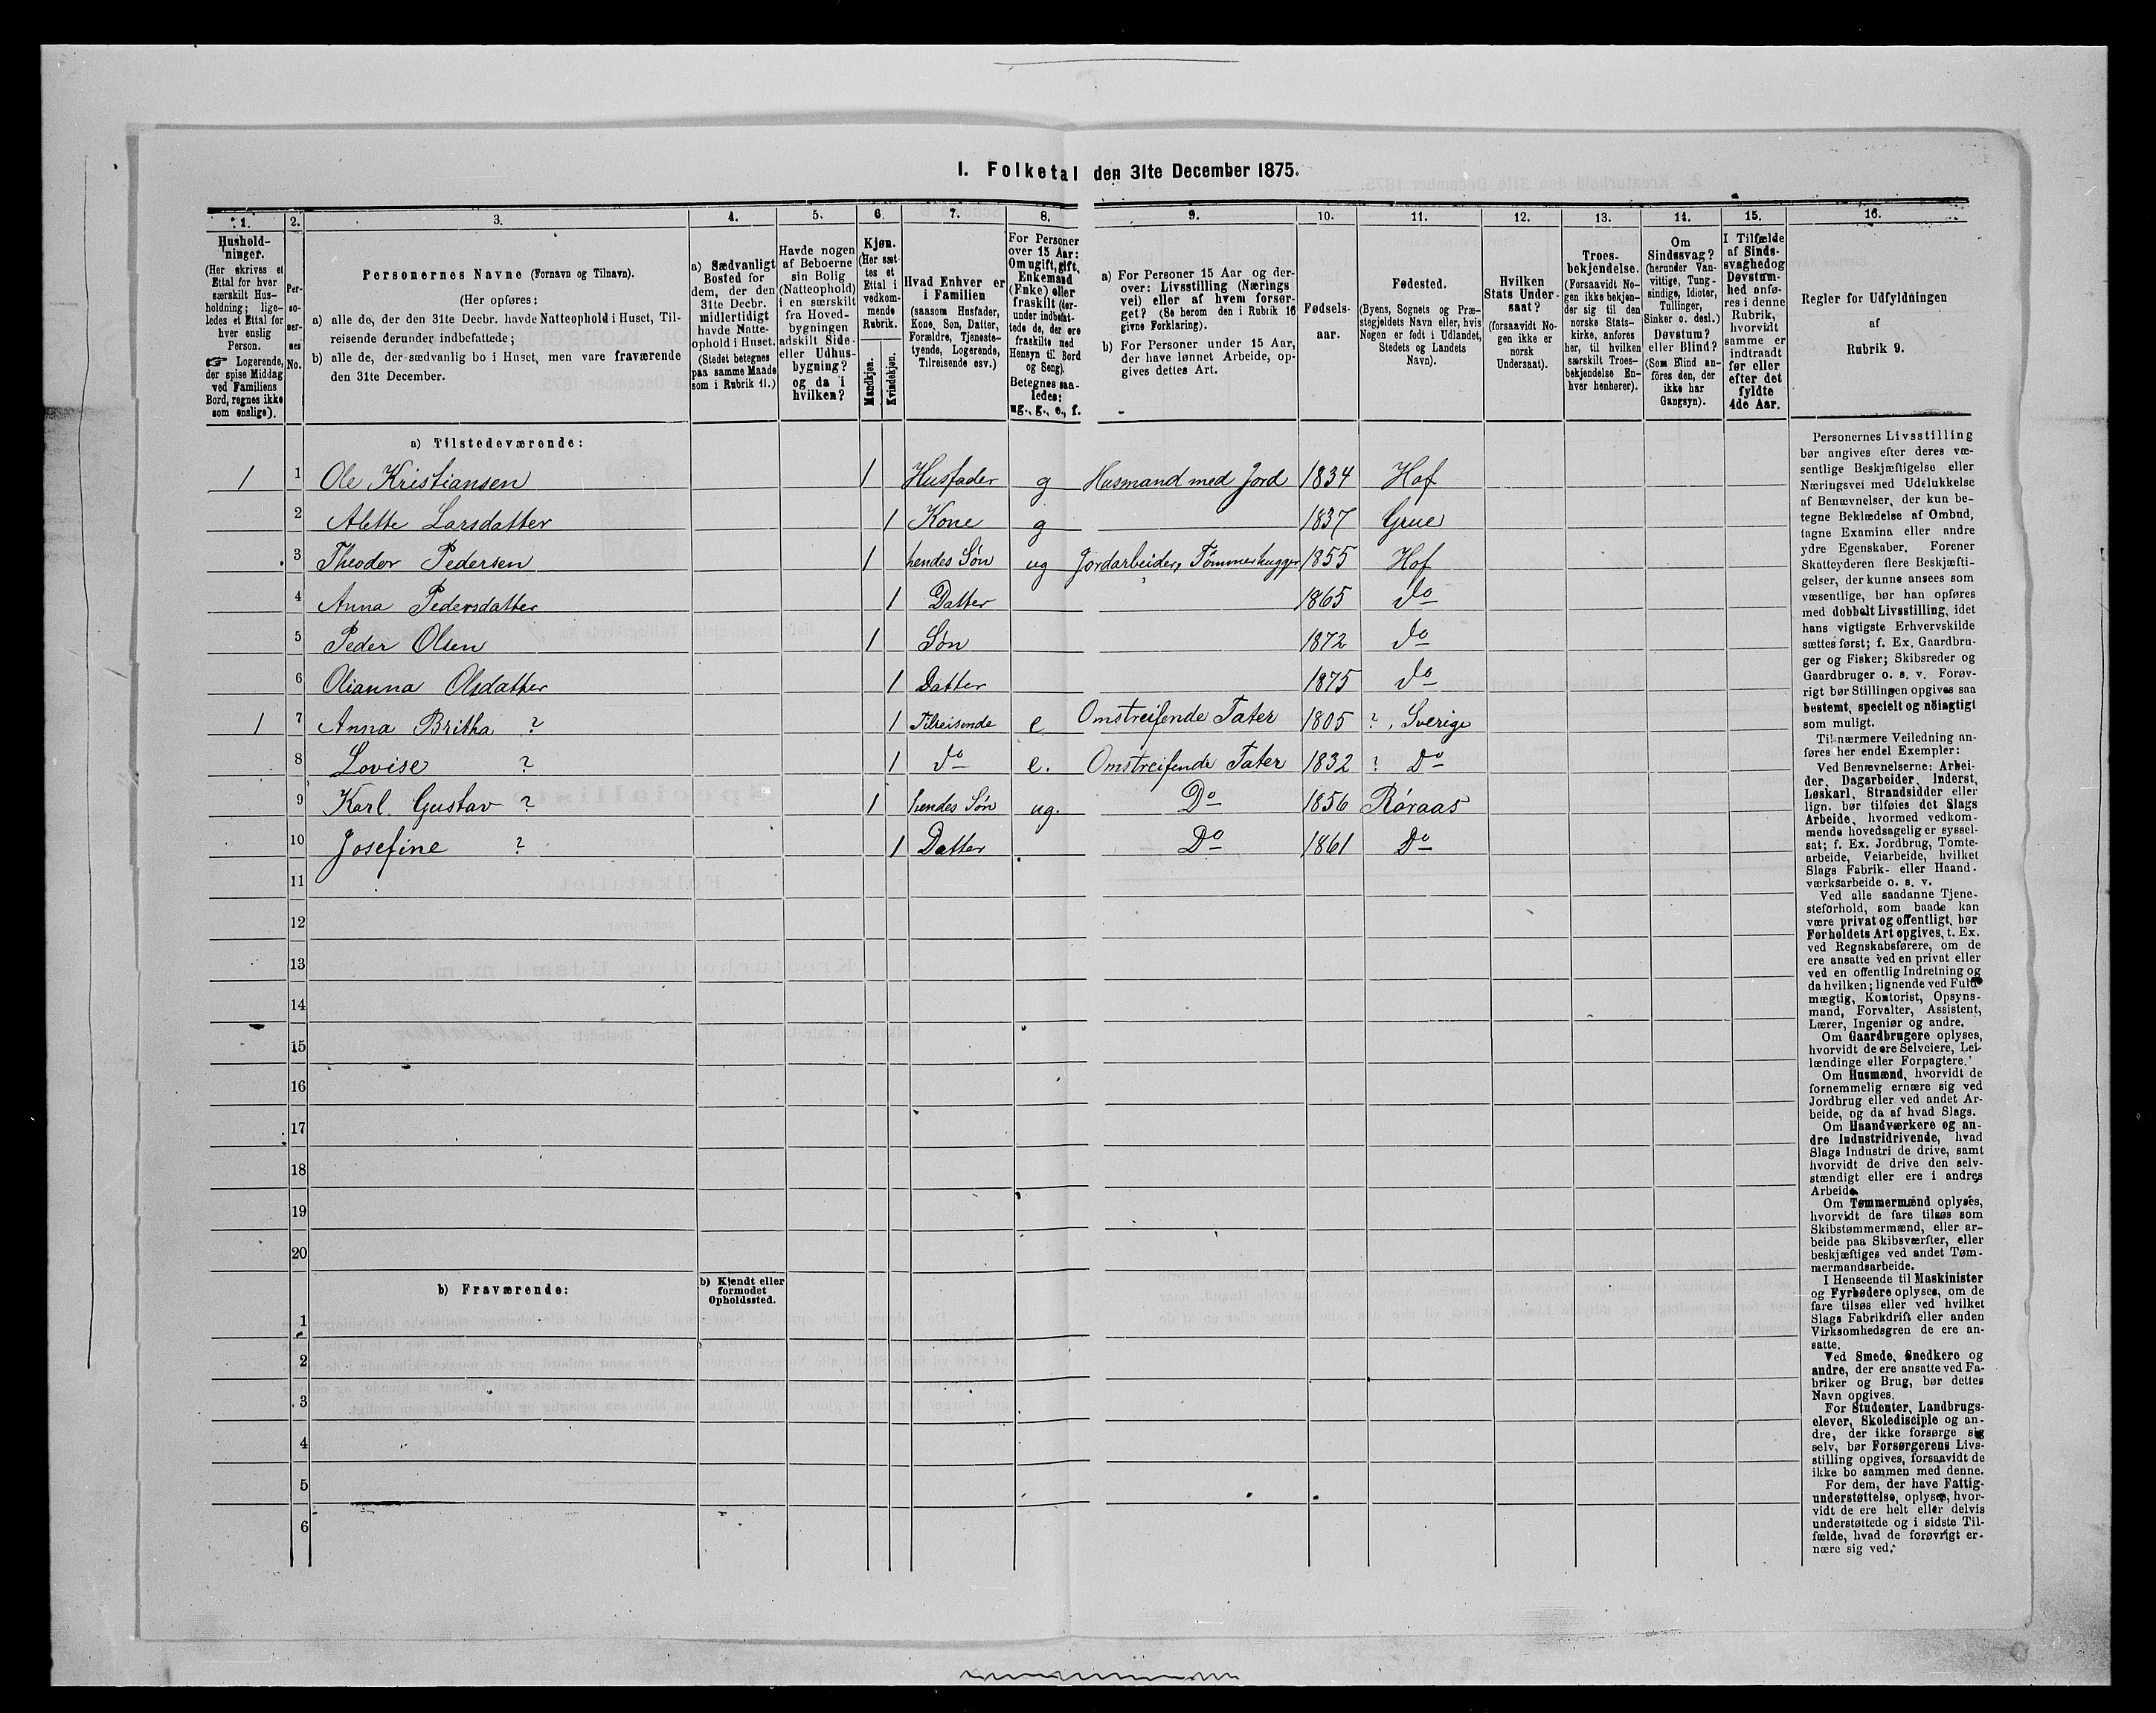 I. Folketal den 31te December 1875.
1. 2. 3. 4. 5. 6. 7. 8. 9. 10. 11. 12. 13. 14. 15. 16.
Hushold-
ninger.
(Her skrives et
Ettal for hver
særskilt Hus-
holdning; lige-
ledes et Ettal for
hver enslig
Person.
☞ Logerende,
der spise Middag
ved Familiens
Bord, regnes ikke
som enslige).
Per-
so-
ner-
nes
No.
Personernes Navne (Fornavn og Tilnavn).
(Her opføres:
a) alle de, der den 31te Decbr. havde Natteophold i Huset, Til-
reisende derunder indbefattede;
b) alle de, der sædvanlig bo i Huset, men vare fraværende
den 31te December.
a) Sædvanligt
Bosted for
dem, der den
31te Decbr.
midlertidigt
havde Natte-
ophold i Huset.
(Stedet betegnes
paa samme Maade
som i Rubrik 11.)
Havde nogen
af Beboerne
sin Bolig
(Natteophold)
i en særskilt
fra Hoved-
bygningen
adskilt Side-
eller Udhus-
bygning?
og da i
hvilken?
Kjøn.
(Her sæt-
tes et
Ettal i
vedkom-
mende
Rubrik.
Mandkjøn.
Kvindekjøn.
Hvad Enhver er
i Familien
(saasom Husfader,
Kone, Søn, Datter,
Forældre, Tjeneste-
tyende, Logerende,
Tilreisende osv.)
For Personer
over 15 Aar:
Om ugift, gift,
Enkemand
(Enke) eller
fraskilt (der-
under indbefat-
tede de, der ere
fraskilte med
Hensyn til Bord
og Seng).
Betegnes saa-
ledes:
ug., g., e., f.
a) For Personer 15 Aar og der-
over: Livsstilling (Nærings
vei) eller af hvem forsør-
get? (Se herom den i Rubrik 16
givne Forklaring).
b) For Personer under 15 Aar,
der have lønnet Arbeide, op-
gives dettes Art.
Fødsels-
aar.
Fødested.
(Byens, Sognets og Præ-
stegjeldets Navn eller, hvis
Nogen er født i Udlandet,
Stedets og Landets
Navn).
Hvilken
Stats Under-
saat?
(forsaavidt No-
gen ikke er
norsk
Undersaat).
Troes-
bekjendelse.
(Forsaavidt No-
gen ikke bekjen-
der sig til den
norske Stats-
kirke, anføres
her, til hvilken
særskilt Troes-
bekjendelse En-
hver henhører).
Om
Sindssvag?
(herunder Van-
vittige, Tung-
sindige, Idioter,
Tullinger,
Sinker o. desl.)
Døvstum?
eller Blind?
(Som Blind an-
føres den, der
ikke har
Gangsyn).
I Tilfælde
af Sinds-
svaghed og
Døvstum-
hed anfø-
res i denne
Rubrik,
hvorvidt
samme er
indtraadt
før eller
efter det
fyldte
4de Aar.
Regler for Udfyldningen
af
Rubrik 9.
a) Tilstedeværende:
1 1 Ole Kristiansen 1 Husfader g Husmand med Jord 1834 Hof
2 Alette Larsdatter 1 Kone g 1837 Grue
3 Theodor Pedersen 1 hendes Søn ug Jordarbeider, Tømmerhugger 1855 Hof
4 Anna Pedersdatter 1 Datter 1865 do
5 Peder Olsen 1 Søn 1872 do
6 Olianna Olsdatter 1 Datter 1875 do
1 7 Anna Britha ? 1 Tilreisende e Omstreifende Tater 1805 ?, Sverige
8 Lovise ? 1 do e. Omstreifende Tater 1832 ? Do
9 Karl Gustav ? 1 hendes Søn ug. Do 1856 Røraas
10 Josefine ? 1 Datter Do 1861 Do
11
12
13
14
15
16
17
18
19
20
b) Fraværende:
b) Kjendt eller
formodet
Opholdssted.
1
2
3
4
5
6
Personernes Livsstilling
bør angives efter deres væ-
sentlige Beskjæftigelse eller
Næringsvei med Udelukkelse
af Benævnelser, der kun be-
tegne Beklædelse af Ombud,
tagne Examina eller andre
ydre Egenskaber. Forener
Skatteyderen flere Beskjæfti-
gelser, der kunne ansees som
væsentlige, bør han opføres
med dobbelt Livsstilling, idet
hans vigtigste Erhvervskilde
sættes først; f. Ex. Gaardbru-
ger og Fisker; Skibsreder og
Gaardbruger o. s. v. Forøv-
rigt bør Stillingen opgives saa
bestemt, specielt og nöiagtigt
som muligt.
Til nærmere Veiledning an-
føres her endel Exempler:
Ved Benævnelserne: Arbei-
der, Dagarbeider, Inderst,
Løskarl, Strandsidder eller
lign. bør tilføies det Slags
Arbeide, hvormed vedkom-
mende hovedsagelig er syssel-
sat; f. Ex. Jordbrug, Tomte-
arbeide, Veiarbeide, hvilket
Slags Fabrik- eller Haand-
værksarbeide o. s. v.
Ved alle saadanne Tjene-
steforhold, som baade kan
være privat og offentligt, bør
Forholdets Art opgives, t. Ex.
ved Regnskabsførere, om de
ere ansatte ved en privat eller
ved en offentlig Indretning og
da hvilken; lignende ved Fuld-
mægtig, Kontorist, Opsyns-
mand, Forvalter, Assistent,
Lærer, Ingeniør og andre.
Om Gaardbrugere oplyses,
hvorvidt de ere Selveiere, Lei-
lændinge eller Forpagtere.
Om Husmænd, hvorvidt de
fornemmelig ernære sig ved
Jordbrug eller ved andet Ar-
beide, og da af hvad Slags.
Om Haandværkere og an-
dre Industridrivende, hvad
Slags Industri de drive, samt
hvorvidt de drive den selv-
stændigt eller ere i andres
Arbeide.
Om Tømmermænd oplyses,
hvorvidt de fare tilsøs som
Skibstømmermænd, eller ar-
beide paa Skibsværfter, eller
beskjæftiges ved andet Tøm-
mermandsarbeide.
I Henseende til Maskinister
og Fyrbødere oplyses, om de
fare tilsøs eller ved hvilket
Slags Fabrikdrift eller anden
Virksomhedsgren de ere an-
satte.
Ved Smede, Snedkere og
andre, der ere ansatte ved Fa-
briker og Brug, bør dettes
Navn opgives.
For Studenter, Landbrugs-
elever, Skoledisciple og an-
dre, der ikke forsørge sig
selv, bør Forsørgerens Livs-
stilling opgives, forsaavidt de
ikke bo sammen med denne.
For dem, der have Fattig-
understøttelse, oplyses, hvor-
vidt de ere helt eller delvis
understøttede og i sidste Til-
fælde, hvad de forøvrigt er-
nære sig ved.